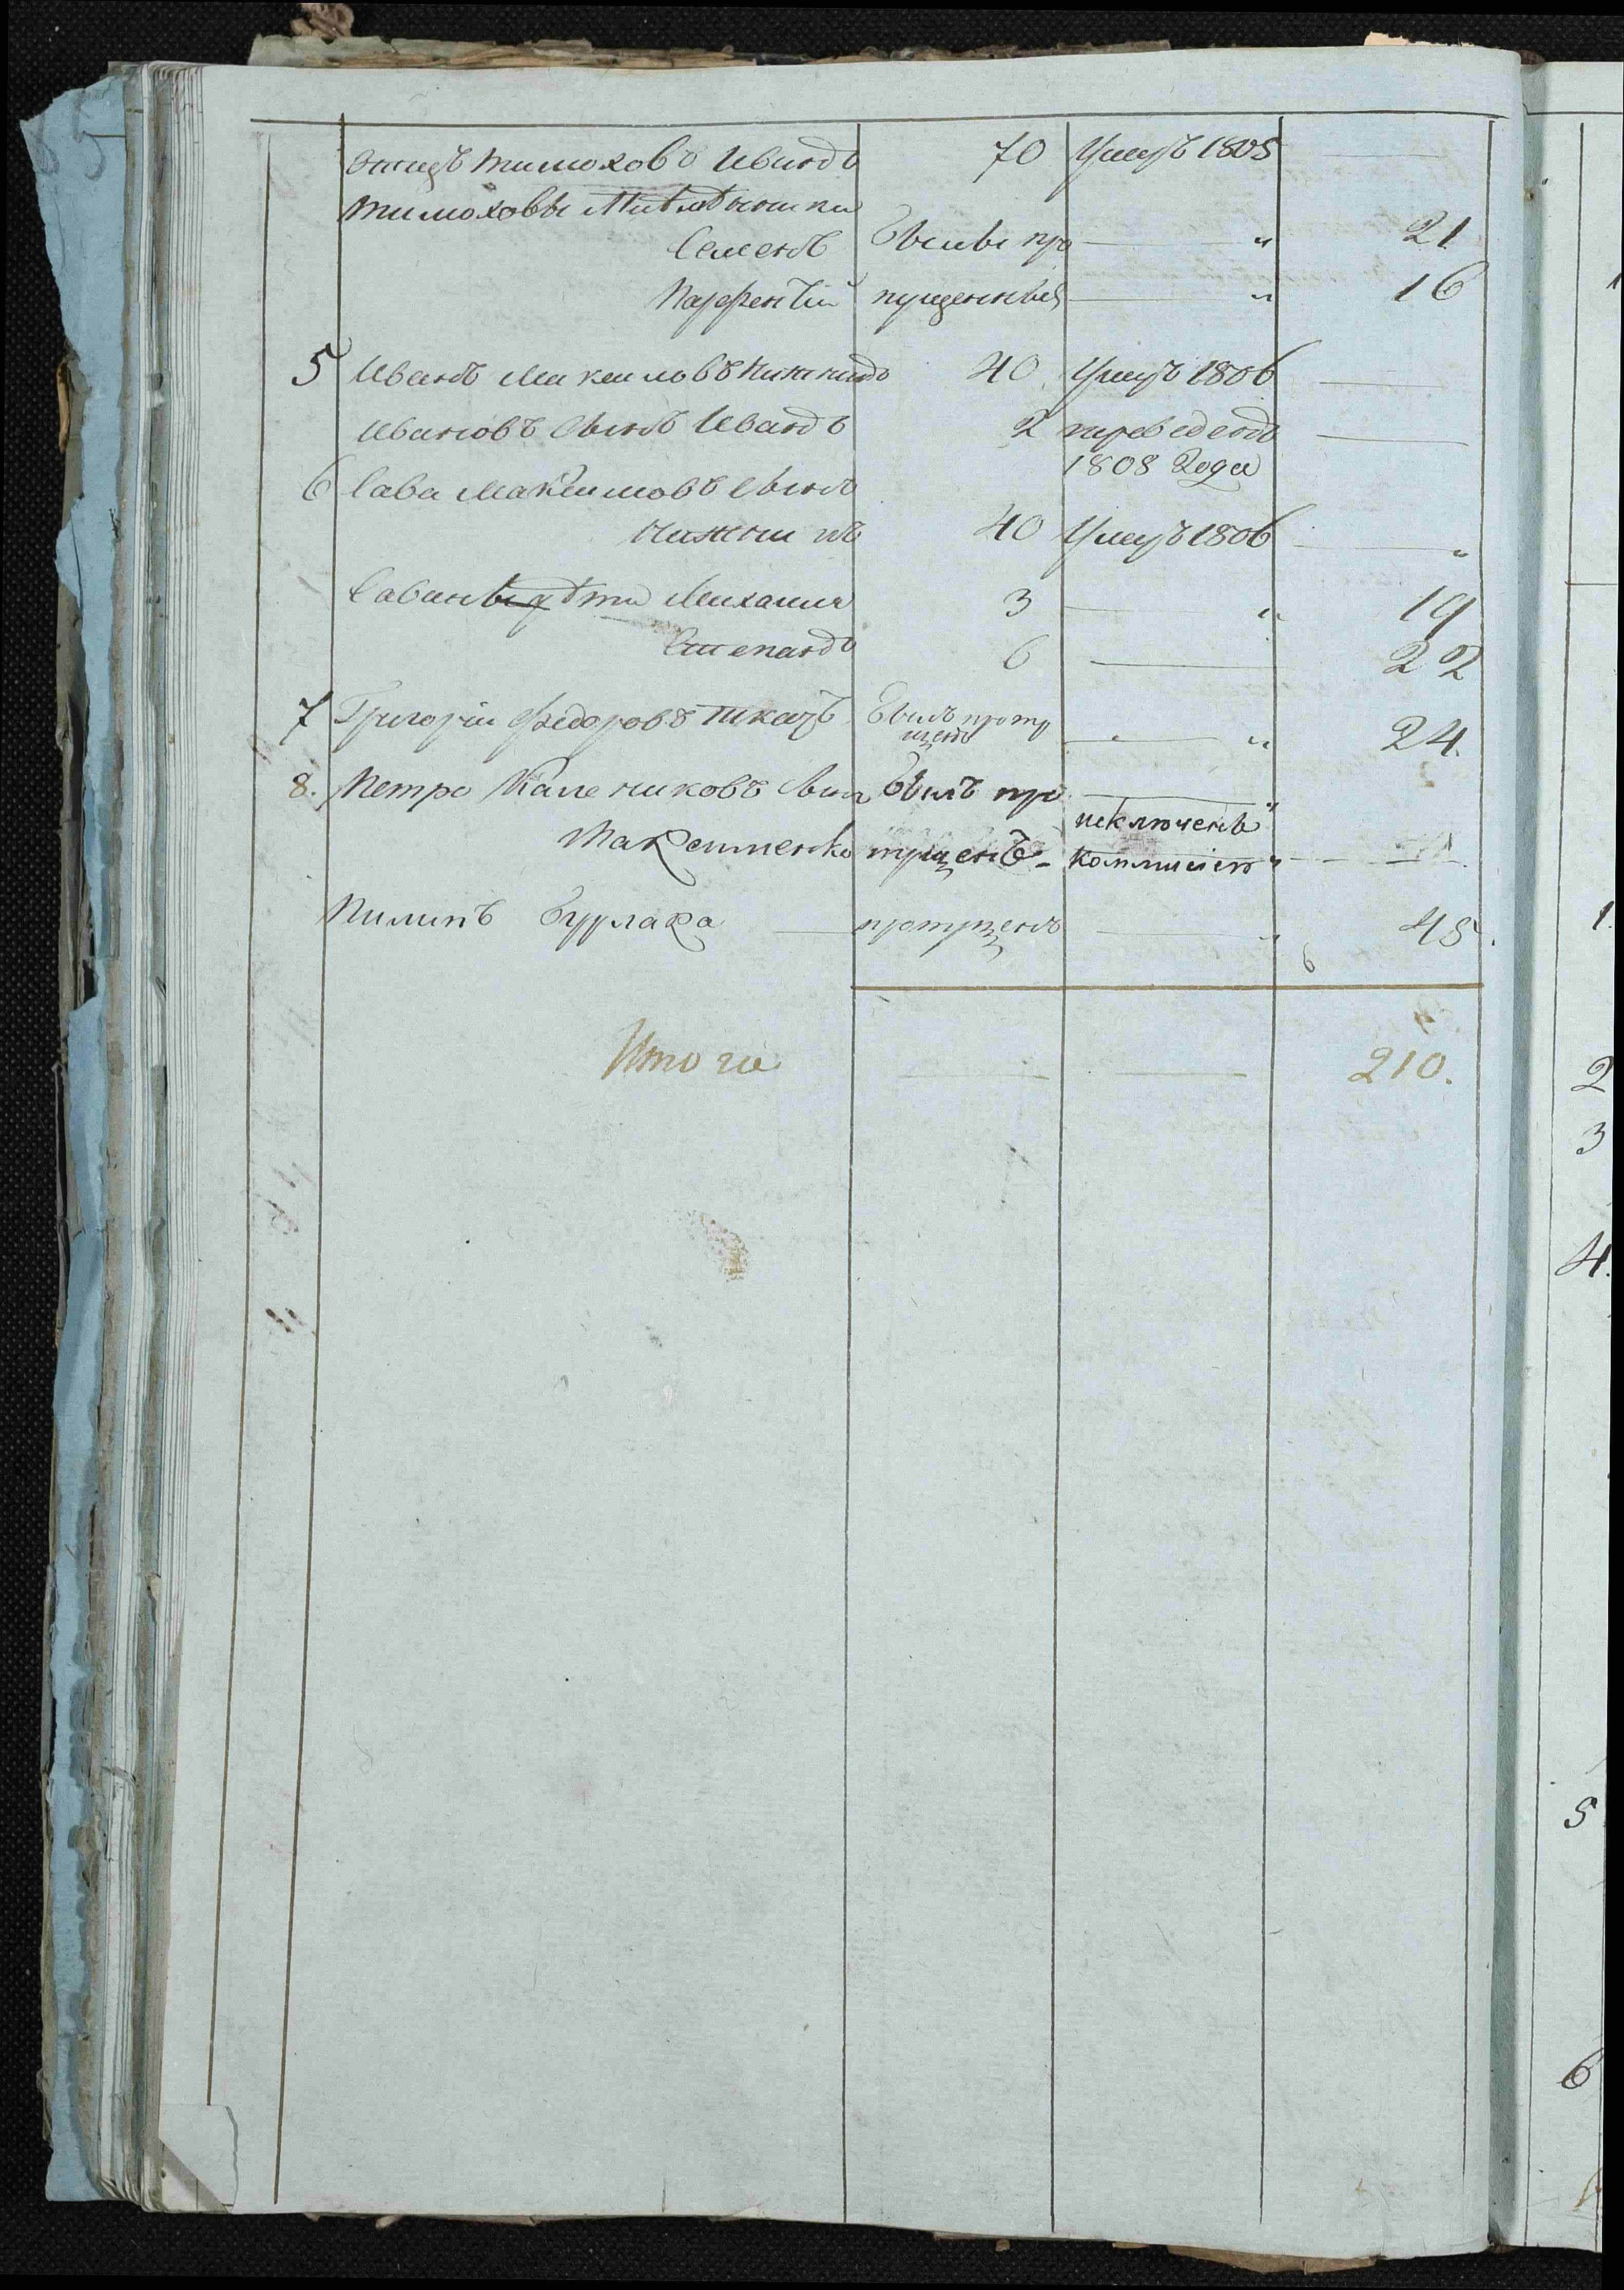 отецъ тимоховъ Иванъ 70 умеръ 1805
тимоховы племѣнники
Семенъ были про „ 21
Парфентїй пущенный „ 16
5 Иванъ Максимовъ Нижникъ 40 умеръ 1806
Ивановъ сынъ Иванъ 2 переведенъ
1808 года
6 Сава Максимовъ сынъ
Нижникъ 40 умеръ 1806 „
Савины дѣти Михаила 3 „ 19
Степанъ 6 22
7 Григорїи Федоровъ ткачъ былъ пропу
щенъ „ 24.
8. Петро Калениковъ сынъ былъ про „
Максименко пущенъ исключенъ
коммисїею „
Пилипъ Бурлака пропущенъ „ 45.
6
Итого 210.
1.
2
3
4.
5
6